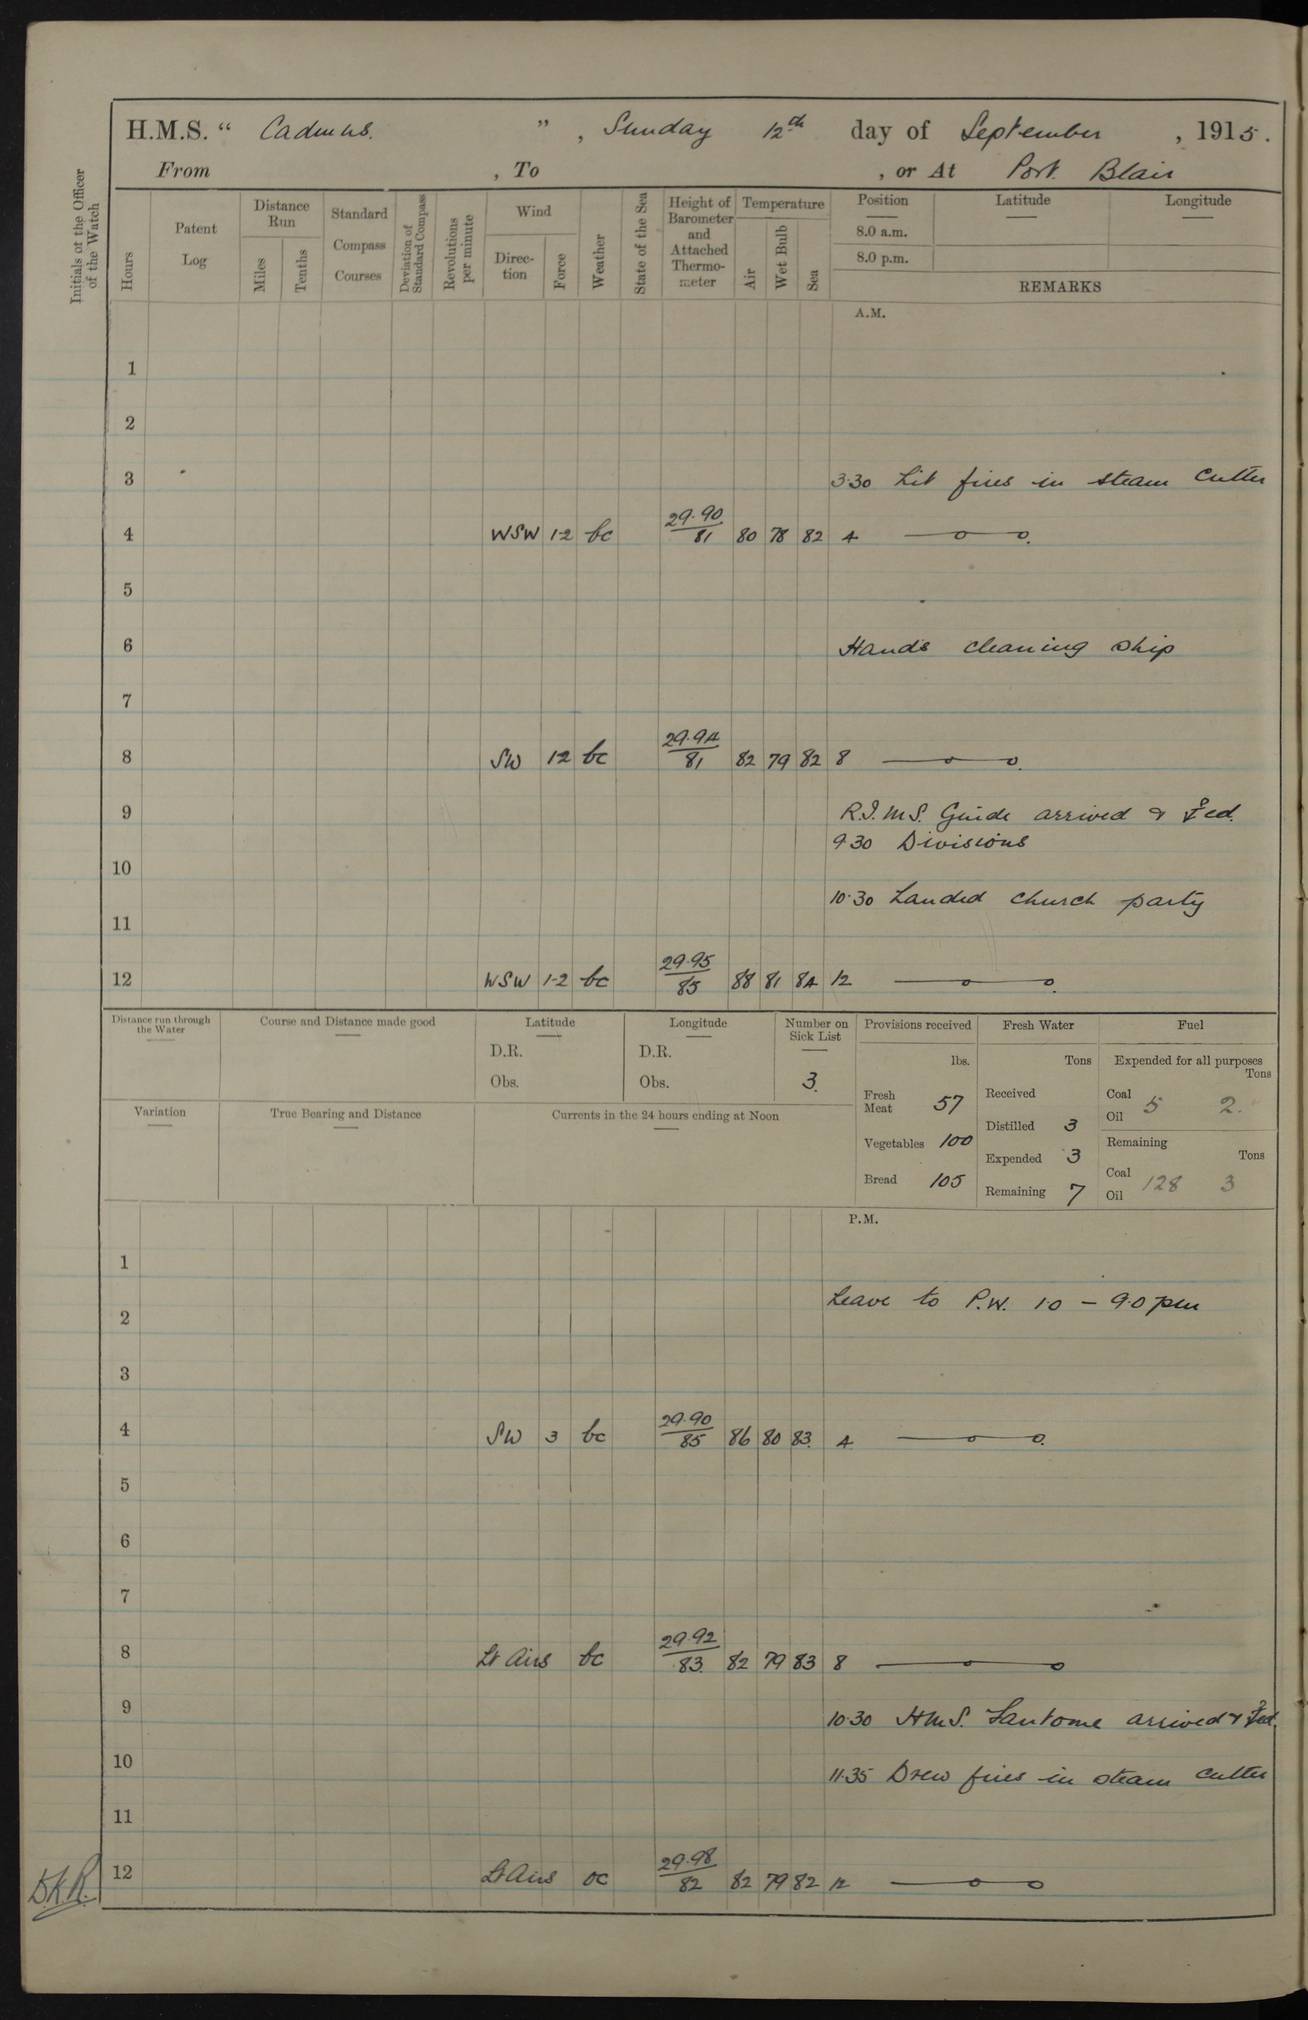 H.M.S. " Cadmus. " , Sunday 12th day of September , 1915.
From , To , or At Port Blair
Initials of the Officer of the Watch
Hours
Patent Log
Distance Run
Miles
Tenths
Standard Compass Courses
Deviation of Standard Compass
Revolutions per minute
Wind
Direction
Force
Weather
State of the Sea
Height of Barometer and Attached Thermometer
Temperature
Air
Wet Bulb
Sea
Position Latitude Longitude
8.0 a.m.
8.0 p.m.
REMARKS
A.M.
1
2
3 3.30 Lit fires in steam cutter
4 WSW 1-2 bc 29.90/81 80 78 82 4
5
6 Hands cleaning ship
7
8 SW 1-2 bc 29.94/81 82 79 82 8
9 R.I.M.S. Guide arrived & ⚓ed.
9.30 Divisions
10
10.30 Landed church party
11
12 WSW 1-2 bc 29.95/85 88 81 84 12
Distance run through the Water
Course and Distance made good
Latitude
D.R.
Obs.
Longitude
D.R.
Obs.
Number on Sick List
3.
Provisions received
lbs.
Fresh Meat 57
Vegetables 100
Bread 105
Fresh Water
Tons
Received
Distilled 3
Expended 3
Remaining 7
Fuel
Expended for all purposes
Tons
Coal
Oil 5 2.
Remaining
Tons
Coal
Oil 128 3
Variation
True Bearing and Distance
Currents in the 24 hours ending at Noon
P.M.
1
Leave to P.W. 1.0 - 9.0 pm
2
3
4 SW 3 bc 29.90/85 86 80 83. 4
5
6
7
8 Lt Airs bc 29.92/83. 82 79 83 8
9 10.30 HMS. Fantome arrived & ⚓ed.
10 11.35 Drew fires in steam cutter
11
12 Lt Airs oc 29.98/82 82 79 82 12
D.K.R.